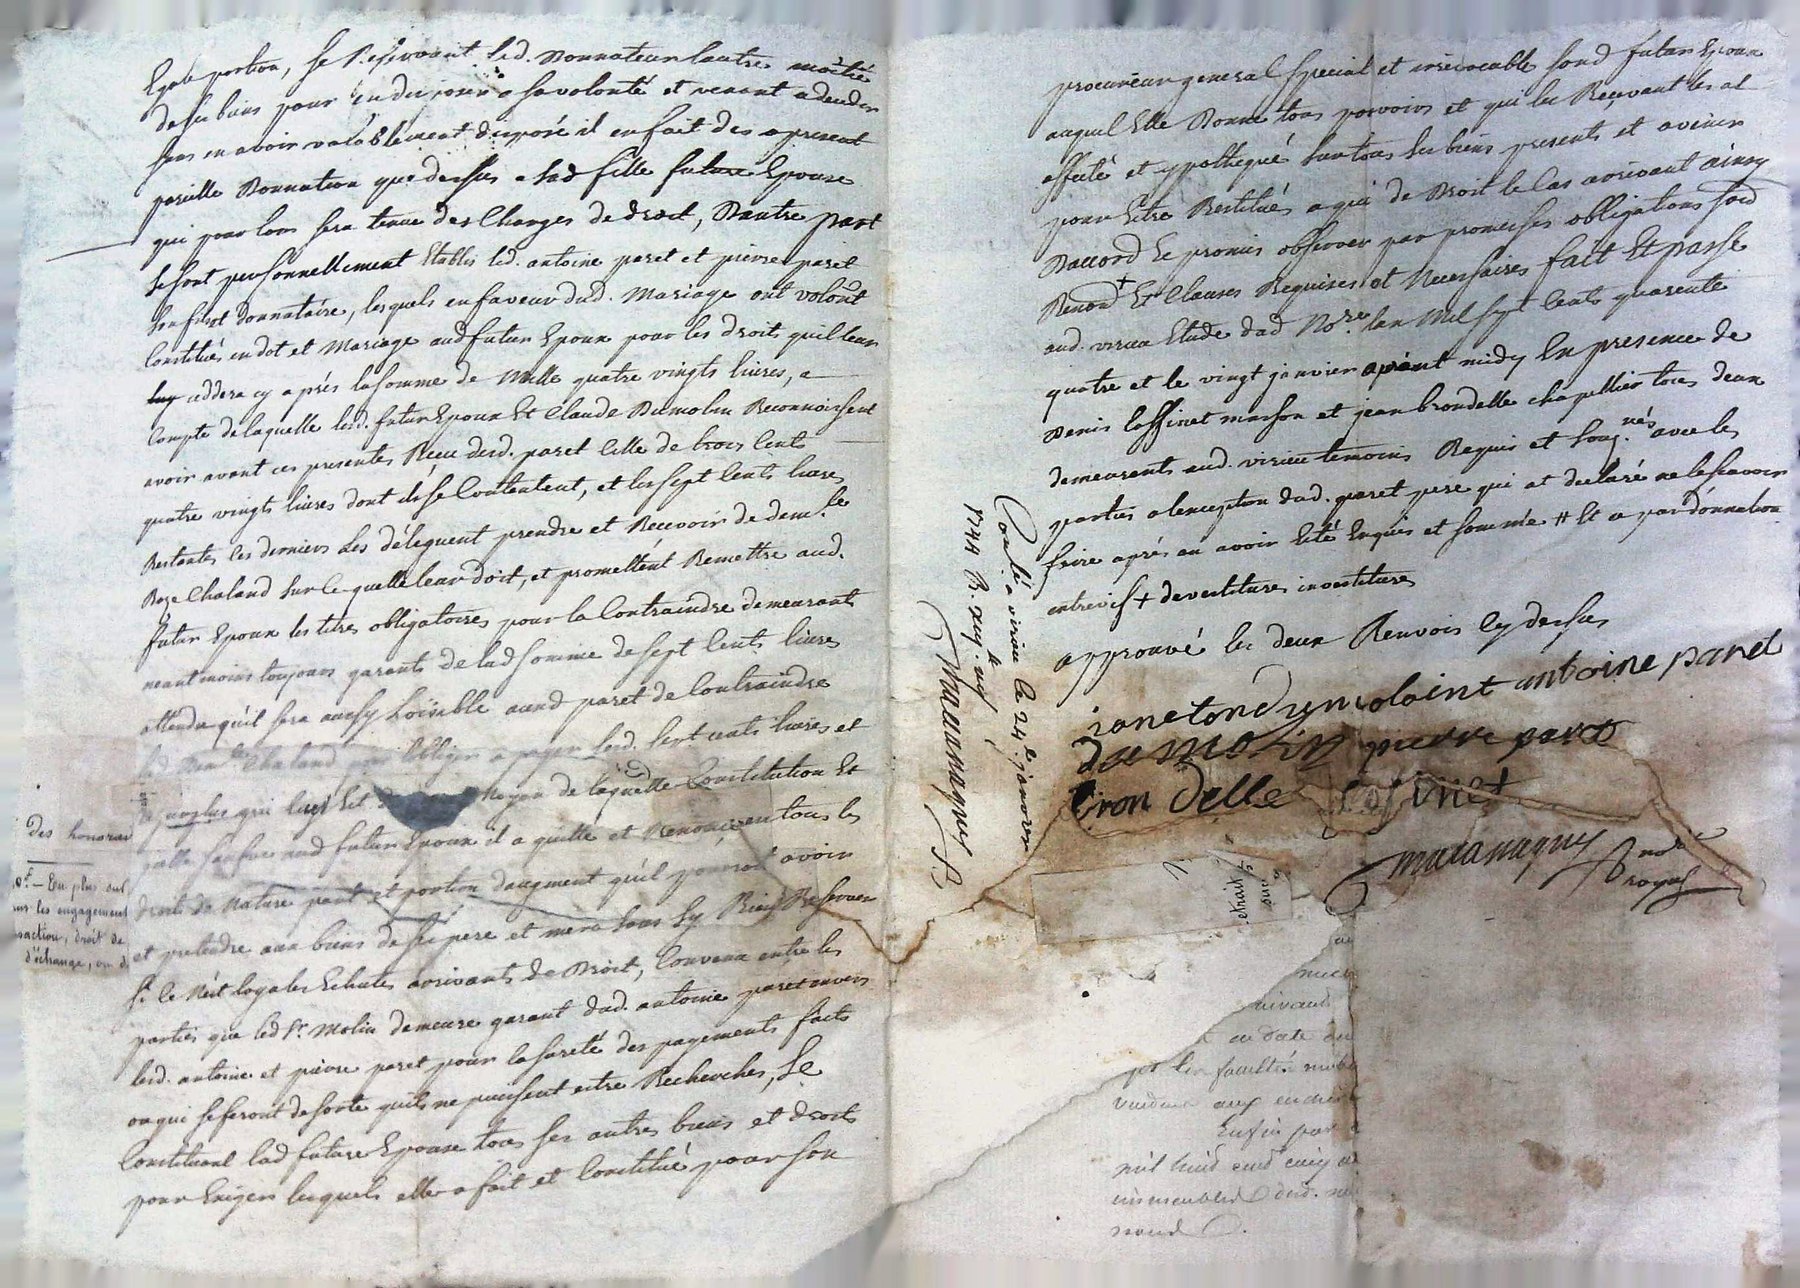 Egale portion, se Reservant led. Donnateur lautre moitié
de ses biens pour en disposer a sa volonté et venant a deceder
sans en avoir valablement disposé il en fait des apresent
pareille Donnation que dessus a lad fille future Epouse
qui pour lors sera tenue des Charges de droit, Dautre part
se sont personnellement Etablis led. antoine paret et pierre paret
son fils et donnataire, lesquels en faveur dud. Mariage ont volont
Constitué en dot et Mariage aud futur Epoux pour les droit quil leur
ceddera cy aprés la somme de Mille quatre vingts livres, a
Compte de laquelle led. futur Epoux Et Claude Dumolin Reconnoissent
avoir avant ces presentes Receu desd. paret Celle de trois Cents
quatre vingts livres dont ils se Contentent, et les sept Cents livres
Restantes les derniers les déleguent prendre et Recevoir de dem.lle
Roze Chaland sur Ce quelle leur doit, et promettent Remettre aud.
futur Epoux les titres obligatoires pour la Contraindre demeurants
neantmoins toujours garants de lad somme de sept Cents livres
attendu quil sera aussy Loisible aund paret de Contraindre
lad dem.lle Chaland pour Lobliger a payer lesd. sept cents livres et
moyen de laquelle Constitution Et
aud futur Epoux il a quitté et Renoncé en tous les
droits de Nature part et portion daugment quil pourroit avoir
et pretendre aux biens de ses pere et mere sans sy Rien Reserver
si Ce Nest loyales Echutes arrivants de Droit, Convenu entre les
parties que led Sr. Molin demeure garant dud. antoine paret envers
lesd. antoine et pierre paret pour la sureté des payements faits
ou qui se feront de sorte quils ne puissent estre Recherchés, Se
Constituant lad future Epouse tous ses autres biens et droits
pour Exiger lesquels elle a fait et Constitué pour son
des honorai
En plus out
les engagement
saction, droit de
d'échange, ou d
procureur general special et irrévocable sond futur Epoux
auquel Elle Donne tous pouvoirs et qui les Recevant les at
affecté et ypothequé sur tous ses biens presents et avenir
pour Estre Restitués a qui de Droit le Cas arrivant ainsy
Daccord Et promis observer par promesses obligations soud
Renon.on + Et Clauses Requises et Necessaires fait Et passé
aud. virieu Etude dud No.re lan Mil sept Cents quarente
quatre et le vingt janvier apréut midy En presence de
Denis Coffinet masson et jean brondelle chapellier tous deux
demeurants aud. virieu temoins Requis et soug.nés avec les
parties a lexception dud. paret pere qui at declaré ne le sçavoir
faire aprés en avoir Eté Enquis et sommé # Et a par donnation
entrevif + devestitures investitures
approuvé les deux Renvois cy dessus
antoine paret
dumolin pierre paret
bron delle Cofinet
maranaguy
not.re
royal
Conlé a virieu le 24e janvier
1744 R. xxij. l
Maranaguy
extrait
au date du
faculté mob
vendues aux enchè
Enfin par
mil huid cent cinq
immeubles dud.